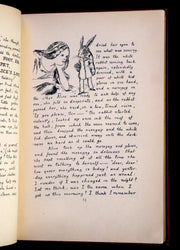 FOOT,
PET,
dried her eyes to
see what was coming.
It was the white
rabbit coming back
again, splendidly
dressed, with a
pair of white kid
gloves in one hand,
and a nosegay in the
other. Alice was ready to ask help of any
one, she felt so desperate, and as the rabbit
passed her, she said, in a low, timid voice,
"If you please, Sir—" the rabbit started
violently, looked up once into the roof of
the hall, from which the voice seemed to come,
and then dropped the nosegay and the white
kid gloves, and skurried away into the dark-
ness as hard as it could go.
Alice took up the nosegay and gloves,
and found the nosegay so delicious that
she kept smelling at it all the time she
went on talking to herself— "dear, dear!
how queer everything is today! and yester-
day everything happened just as usual:
I wonder if I was changed in the night?
Let me think: was I the same when I
got up this morning? I think I remember